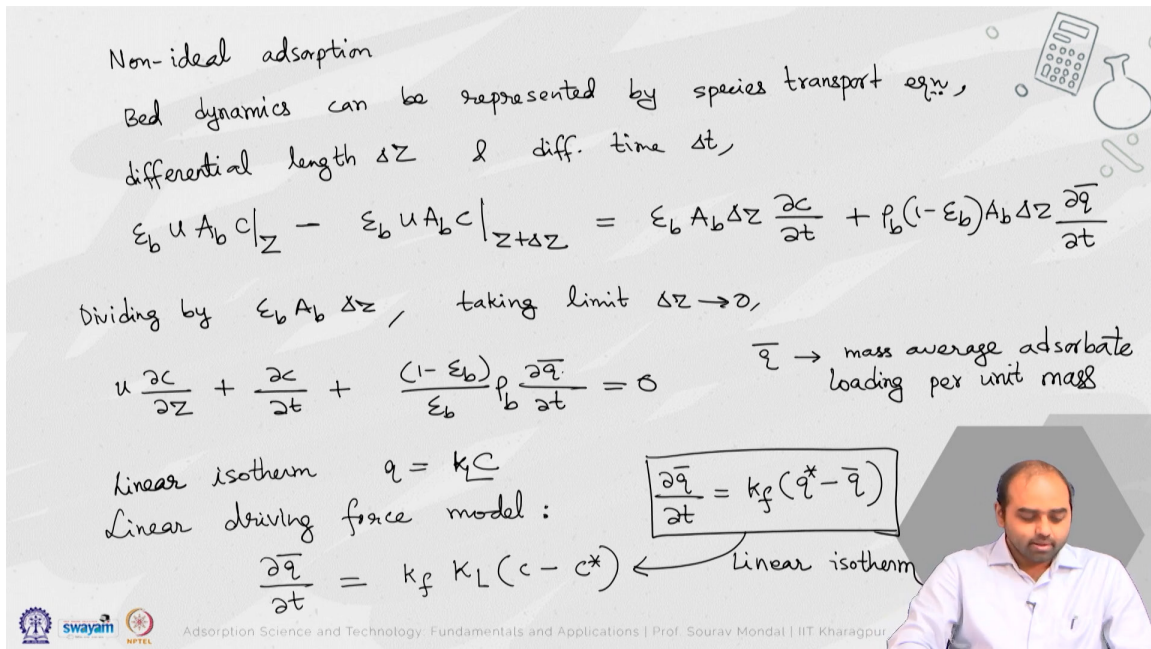 Non-ideal adsorption
Bed dynamics can be represented by species transport eqn,
differential length ΔZ & diff. time Δt,
ε_b u A_b c|_Z − ε_b u A_b c|_{Z+ΔZ} = ε_b A_b ΔZ ∂c/∂t + ρ_b (1-ε_b) A_b ΔZ ∂q̅/∂t
Dividing by ε_b A_b ΔZ, taking limit ΔZ → 0,
u ∂c/∂Z + ∂c/∂t + (1-ε_b)/ε_b ρ_b ∂q̅/∂t = 0
q̅ → mass average adsorbate
loading per unit mass
Linear isotherm q = K_L C
Linear driving force model :
∂q̅/∂t = k_f (q* − q̅)
∂q̅/∂t = k_f K_L (c − c*) ← Linear isotherm
swayam
NPTEL
Adsorption Science and Technology: Fundamentals and Applications | Prof. Sourav Mondal | IIT Kharagpur